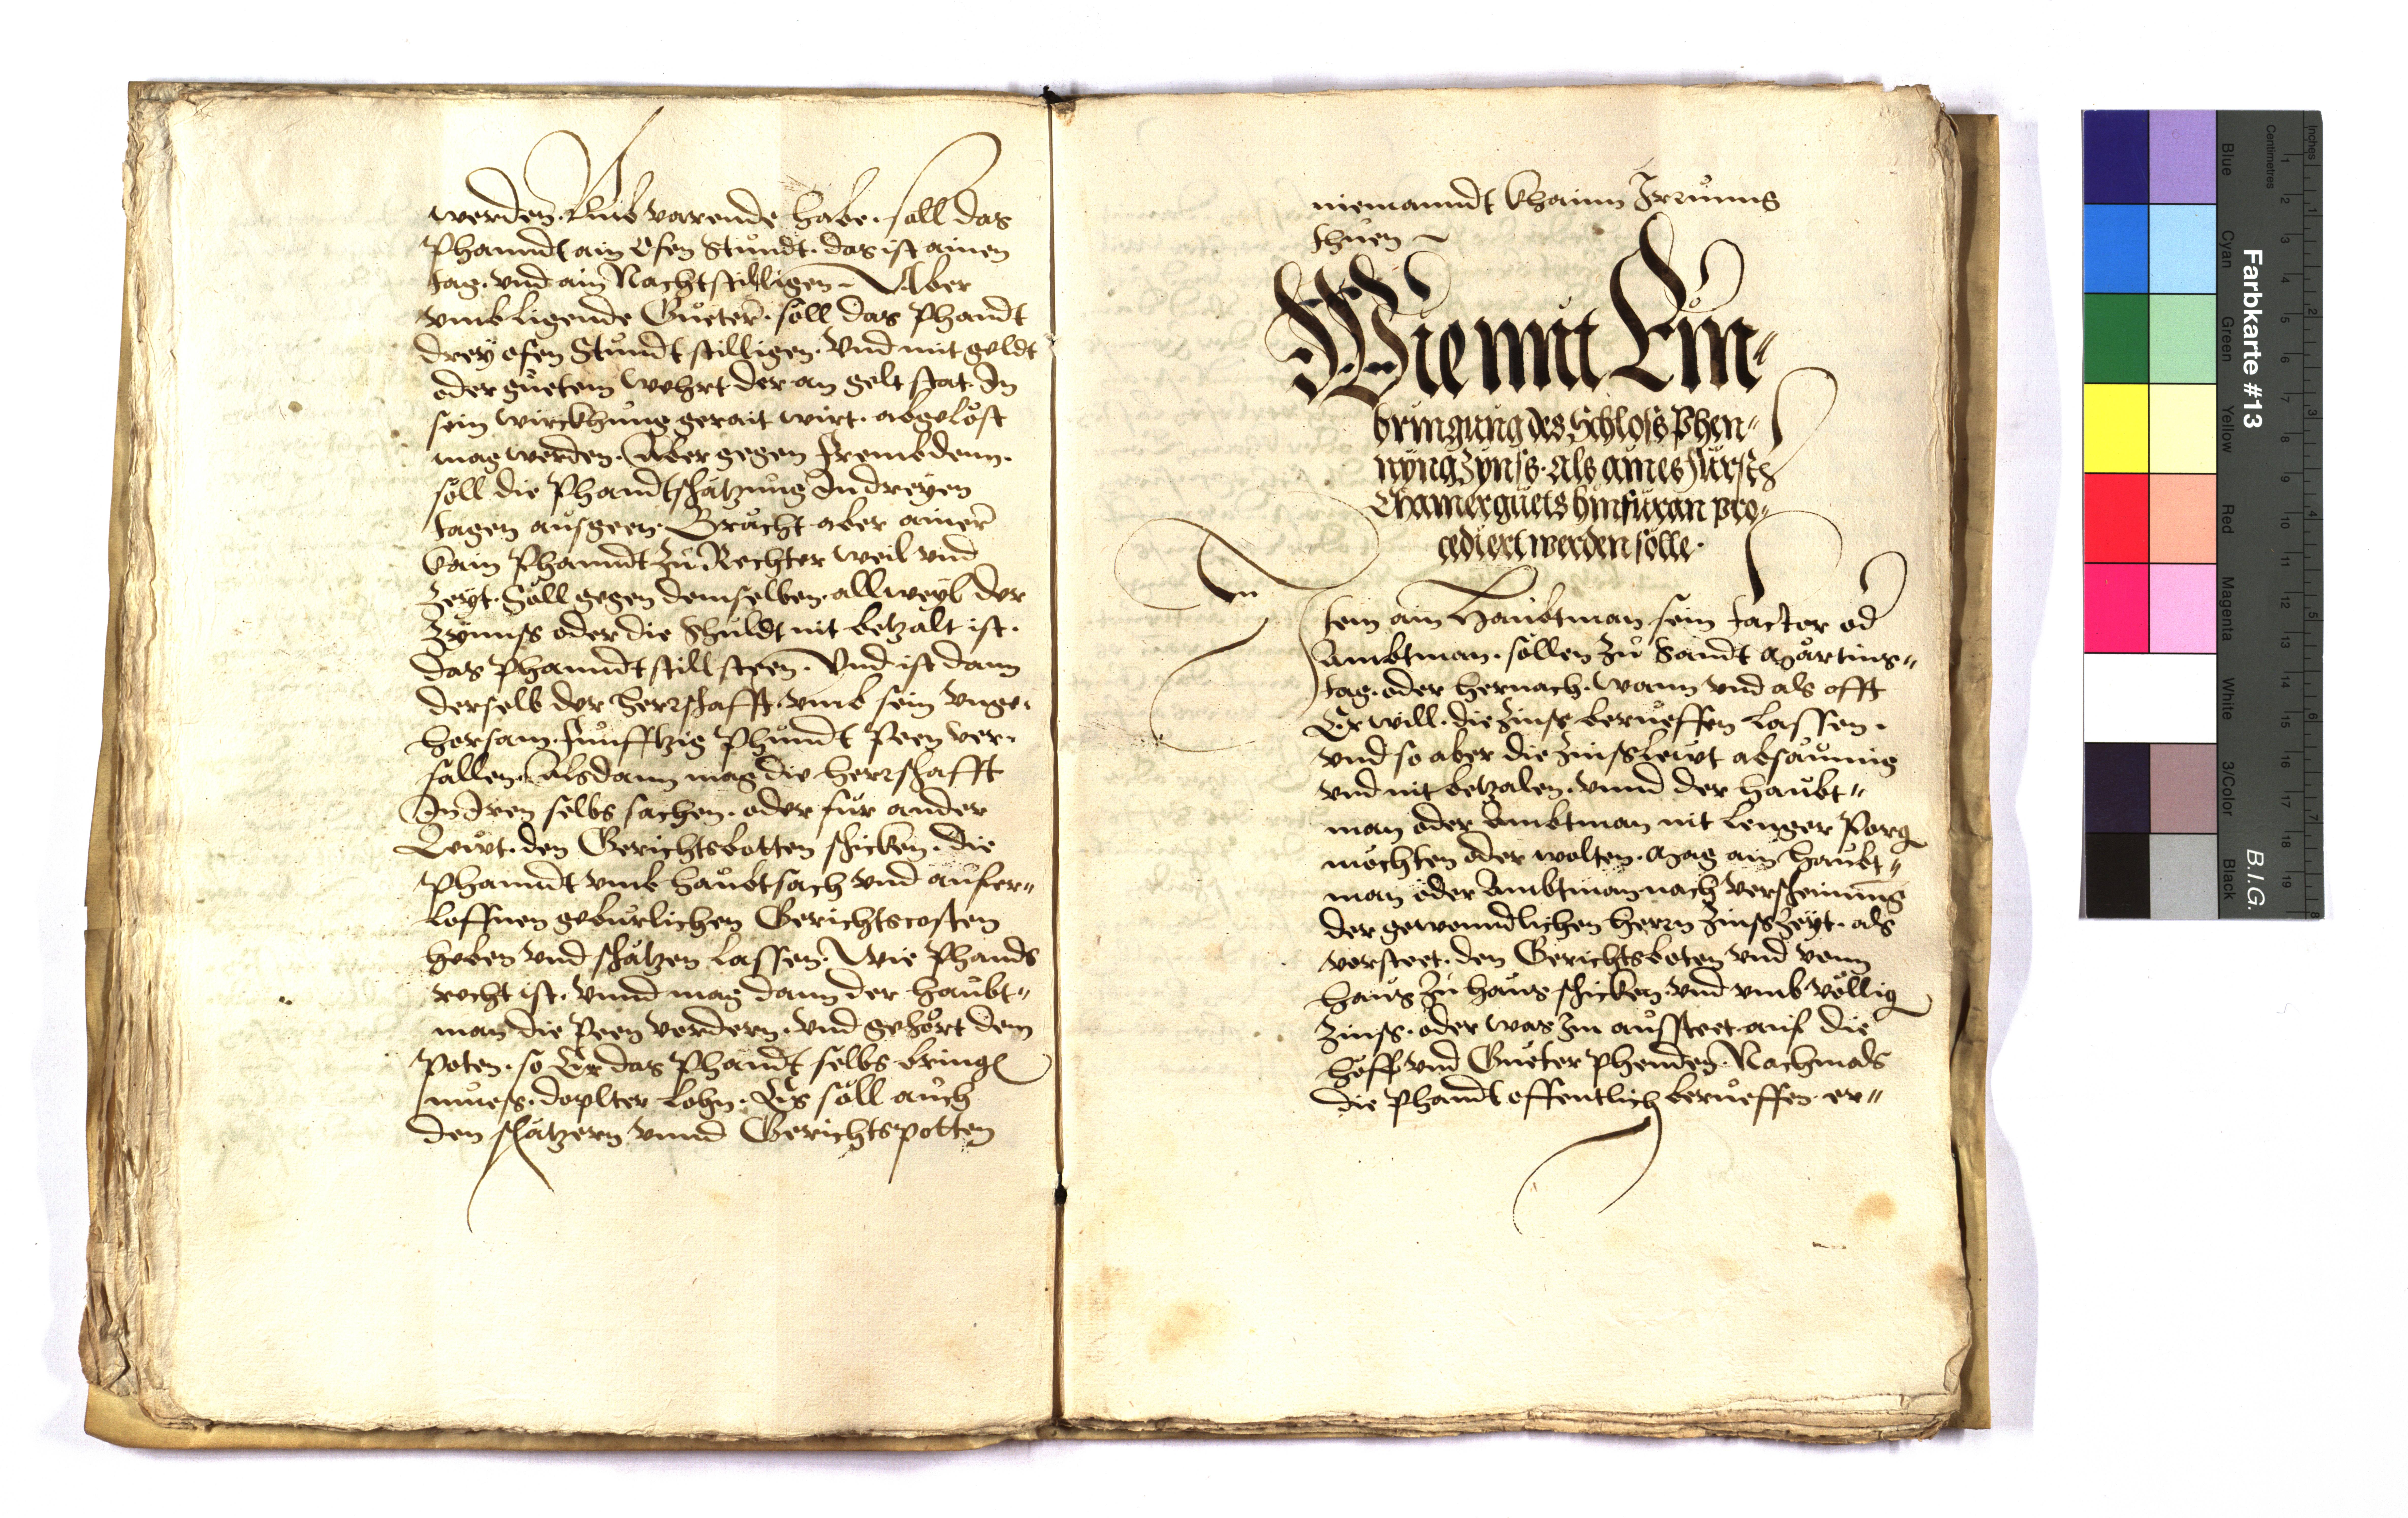 werden. Umb varende habe. soll das
Phanndt ain Ofen Stundt. das ist ainen
tag. vnd ain Nacht stilligen. Aber
vmb ligende Güeter. soll das Phandt
drey ofen Stundt stilligen. Vnd mit geldt
oder guetem wehrt der an gelt stat. In
sein wirckhung gerait wirt. abgelöst
mag werden. Aber gegen Frembdenn.
soll die Phandtschätzung In dreyen
tagen ausgeen. Brächt aber ainer
kain Phanndt Zu Rechter weil vnd
Zeyt. Soll gegen demselben. allweyl der
Zynnss oder die Schuldt nit betzalt ist.
das Phanndt still steen. Vnd ist dann
derselb der herrschafft. vmb sein vnge-
horsam. Funfftzig Phundt Peen ver-
fallen. Alsdann mag die herrschafft
In Iren selbs sachen. oder für ander
Lewt. den Gerichtsbotten schicken. die
Phanndt vmb haubtsach vnd aufer-
loffnen gebürlichen Gerichtscosten
heben vnd schätzen lassen. Wie Phands
recht ist. vnnd mag dann der haubt-
man die Peen vordern. vnd gehört dem
Poten. so Er das Phandt selbs bringen
muess. doplter lohn. Es soll auch
den schätzern vnnd Gerichtspotten
niemanndt khainn Irrunng
thuen
Wie mit Ein-
bringung des Schloss Phen-
nyng Zynss. als aines Fürstn
Chamerguets hinfüran pro-
cediert werden solle.
Item ain Haubtman sein factor od
Ambtman. sollen Zu Sandt Martins-
tag. oder hernach. wann vnd als offt
Er will. die Zinss berueffen lassen.
vnd so aber die Zinsslewt absäumig
vnd nit betzalen. vnnd der haubt-
man oder Ambtman nit lenger Porgn
möchten oder wolten. Mag ain haubt-
man oder Ambtman nach verscheinung
der gewonndlichen herrn Zinss Zeyt. als
vorsteet. den Gerichtsboten vnd vonn
haus Zu haus schicken. vnd vmb völlig
Zinss. oder was Im aussteet. auf die
höff vnd Gueter phenden. Nachmals
die Phandt offentlich berueffen. er-
Farbkarte #13
B.I.G.
Inches
Centimetres
Blue
Cyan
Green
Yellow
Red
Magenta
White
3/Color
Black